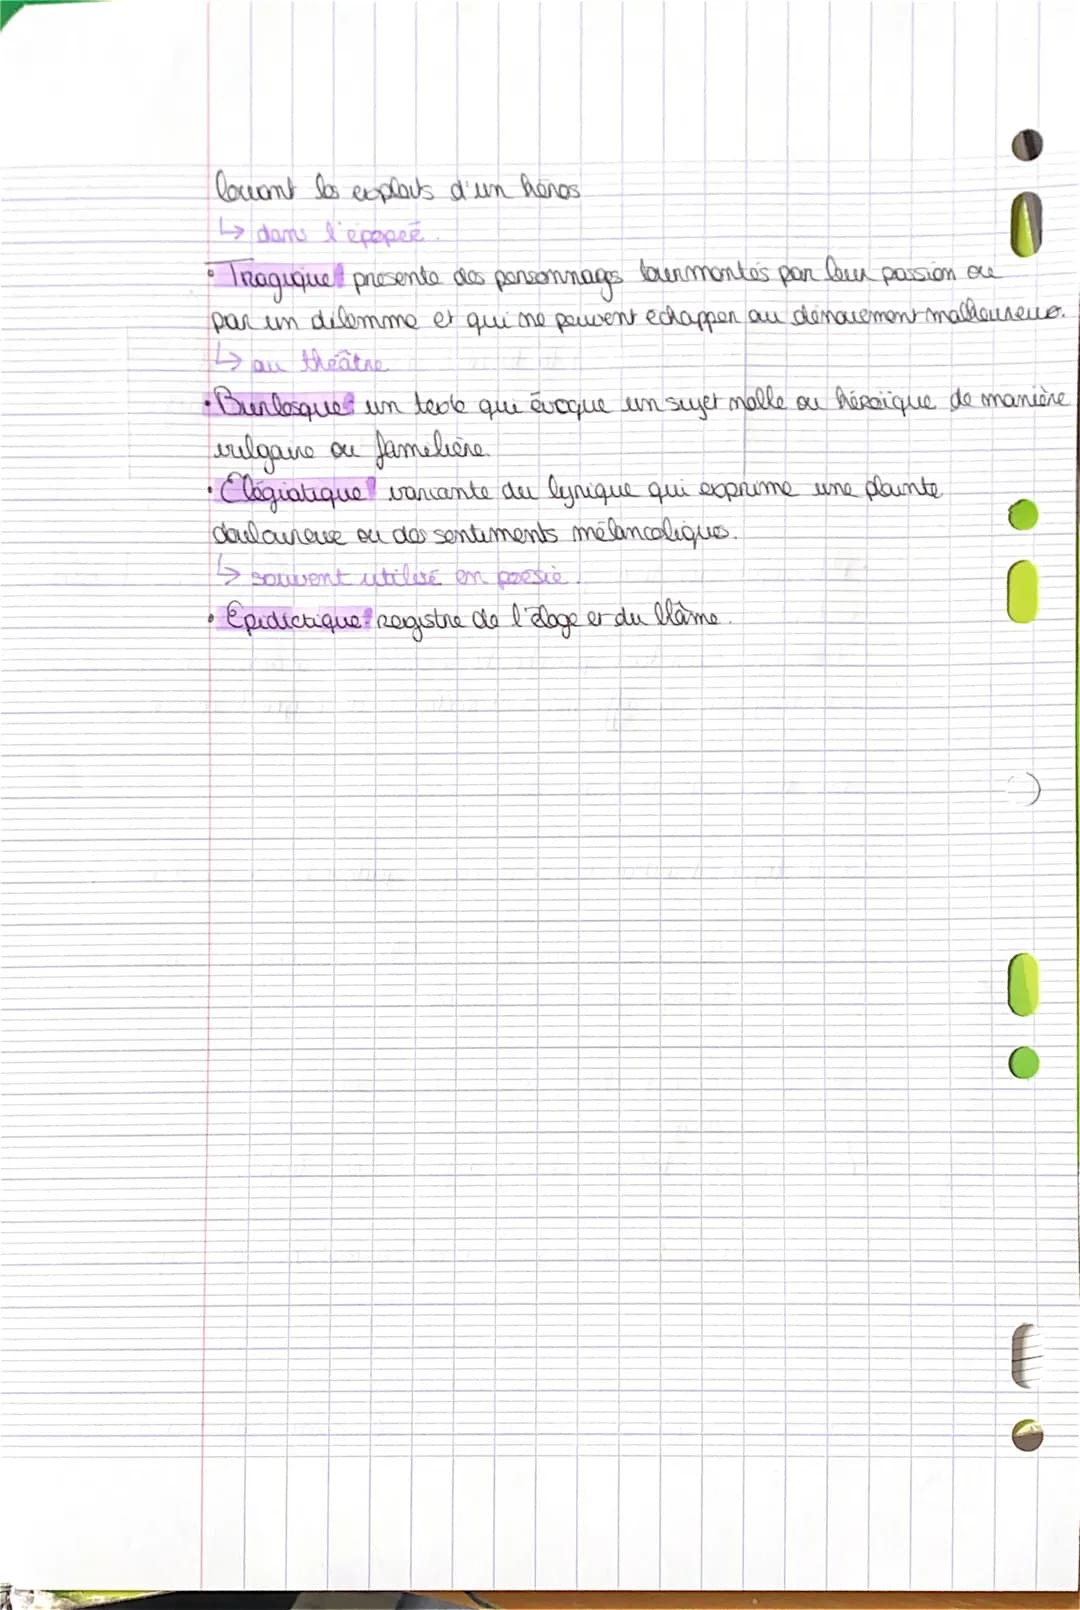 louant les exploits d'un héros
↳ dans l'épopée.
• Tragique: presente des personnages tourmentés par leur passion ou
par un dilemme et qui ne peuvent echapper au dénouement malheureux.
↳ au théâtre
• Burlesque: un texte qui évoque un sujet noble ou héroïque de manière
vulgaire ou familière.
• Elégiatique: variante du lyrique qui exprime une plainte
douloureuse ou des sentiments mélancoliques.
↳ souvent utilisé en poesie.
• Epidictique: registre de l'éloge et du blâme.